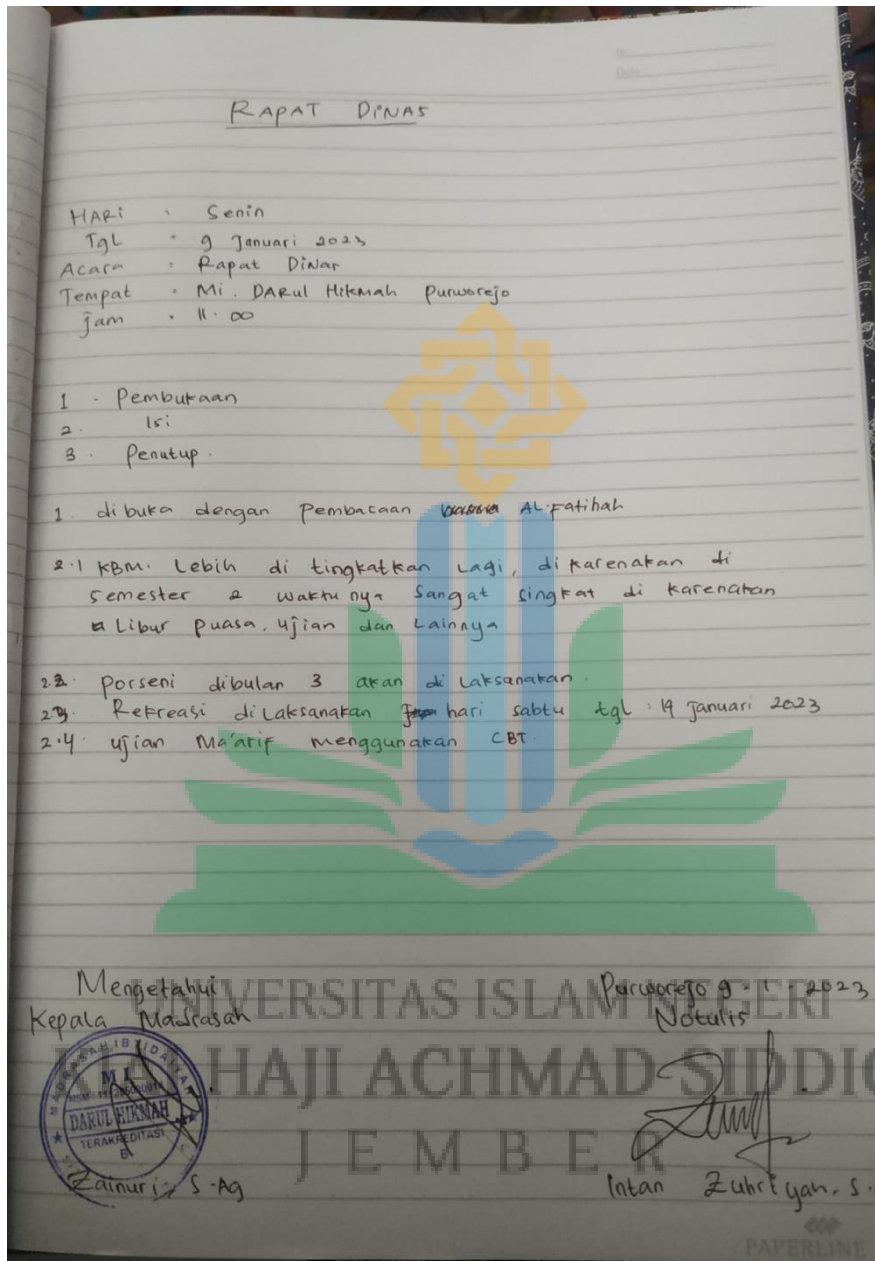 RAPAT DINAS
HARI : Senin
TgL : 9 Januari 2023
Acara : Rapat Dinas
Tempat : Mi. DARul Hikmah Purworejo
jam : 11.00
1. Pembukaan
2. Isi
3. Penutup.
1. di buka dengan Pembacaan AL-Fatihah
2.1 KBM. Lebih di tingkatkan Lagi, di karenakan di
semester 2 waktu nya Sangat singkat di karenakan
Libur puasa, ujian dan Lainnya
2.2. Porseni dibulan 3 akan di Laksanakan.
2.3. Rekreasi di Laksanakan hari sabtu tgl : 19 januari 2023
2.4. ujian Ma'arif menggunakan CBT.
Mengetahui
Kepala Madrasah
Purworejo 9 - 1 - 2023
Notulis
UNIVERSITAS ISLAM NEGERI
HAJI ACHMAD SIDDIQ
JEMBER
MADRASAH IBTIDAIYAH
MI
DARUL HIKMAH
TERAKREDITASI
B
Zainuri, S.Ag
Intan Zuhriyah, S.
PAPERLINE